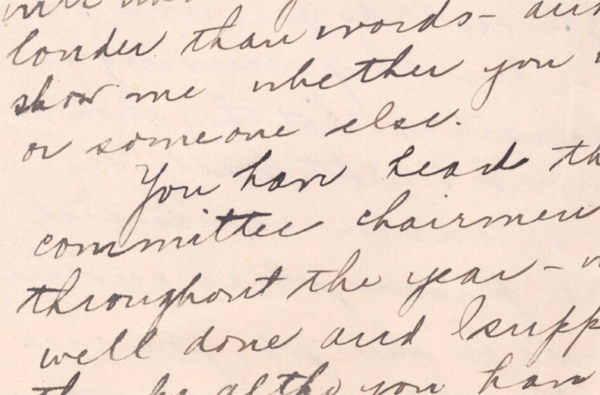 louder than words - and
show me whether you
or someone else.
You have head th
committee chairmen
throughout the year -
well done and I supp
altho you have